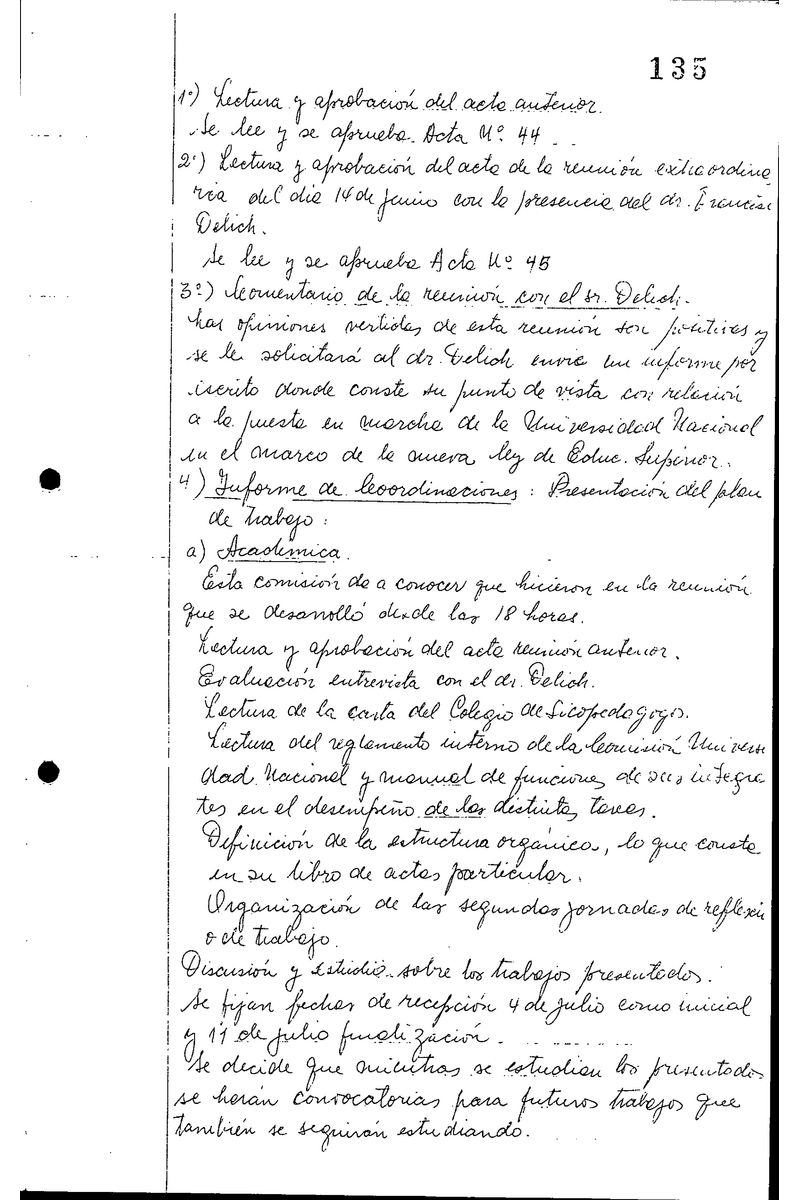 135
1º) Lectura y aprobación del acta anterior.
Se lee y se aprueba Acta Nº 44
2º) Lectura y aprobación del acta de la reunión extraordina
ria del día 14 de junio con la presencia del dr. Francisc
Delich.
Se lee y se aprueba Acta Nº 45
3º) Comentario de la reunión con el sr. Delich.
Las opiniones vertidas de esta reunión son positivas y
se le solicitará al dr. Delich envie un informe por
escrito donde conste su punto de vista con relación
a la puesta en marcha de la Universidad Nacional
en el marco de la nueva ley de Educ. Superior.
4) Informe de Coordinaciones: Presentación del plan
de trabajo:
a) Académica.
Esta comisión da a conocer que hicieron en la reunión
que se desarrolló desde las 18 horas.
Lectura y aprobación del acta reunión anterior.
Evaluación entrevista con el dr. Delich.
Lectura de la carta del Colegio de Sicopedagogos.
Lectura del reglamento interno de la Comisión Universi
dad Nacional y manual de funciones de sus integra
tes en el desempeño de las distintas tareas.
Definición de la estructura orgánica, lo que consta
en su libro de actas particular.
Organización de las segundas jornadas de reflexió
o de trabajo.
Discusión y estudio sobre los trabajos presentados.
Se fijan fechas de recepción 4 de julio como inicial
y 11 de julio finalización.
Se decide que mientras se estudian los presentados
se harán convocatorias para futuros trabajos que
también se seguirán estudiando.